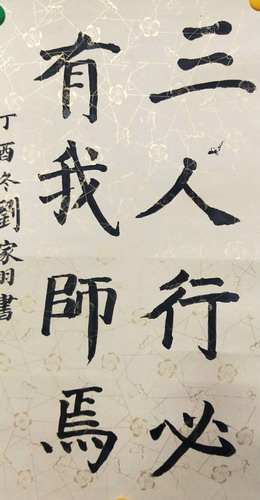 三人行必
有我師焉
丁酉冬劉家羽書